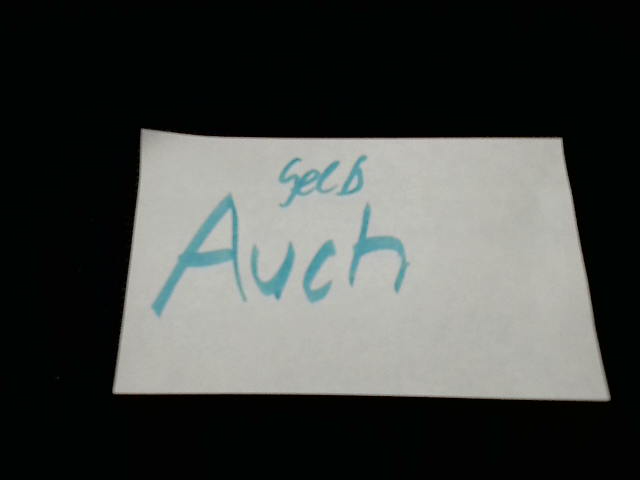 gelb
Auch